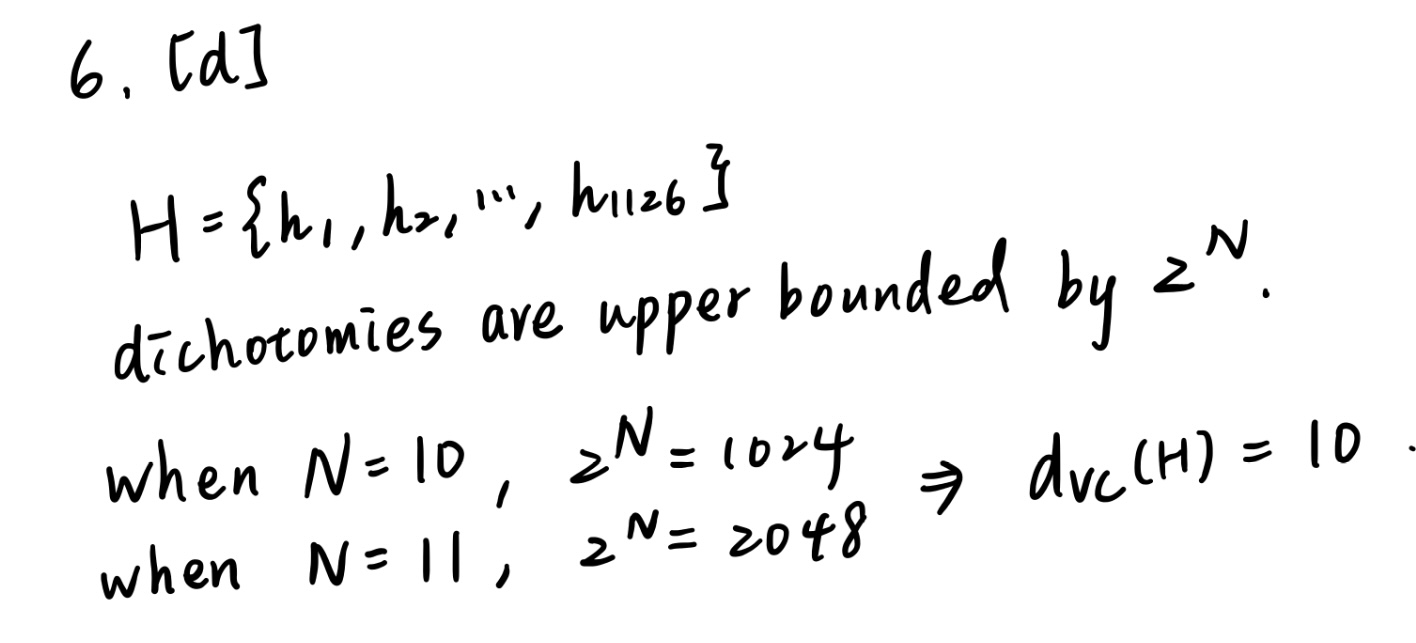 6. [d]
H = {h₁, h₂, ..., h₁₁₂₆}
dichotomies are upper bounded by 2^N.
when N = 10, 2^N = 1024 ⇒ dvc(H) = 10.
when N = 11, 2^N = 2048